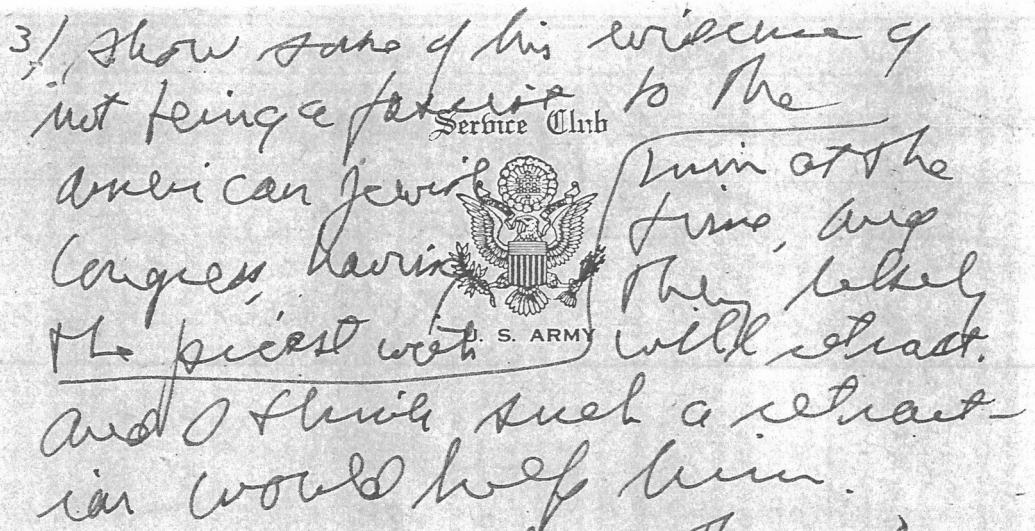 3/, show some of his evidence of
not being a fascist to the
Service Club
american Jewish
Congress, having
the priest with
him at the
time, and
they likely
will retract.
U. S. ARMY
and I think such a retract-
ion would help him.